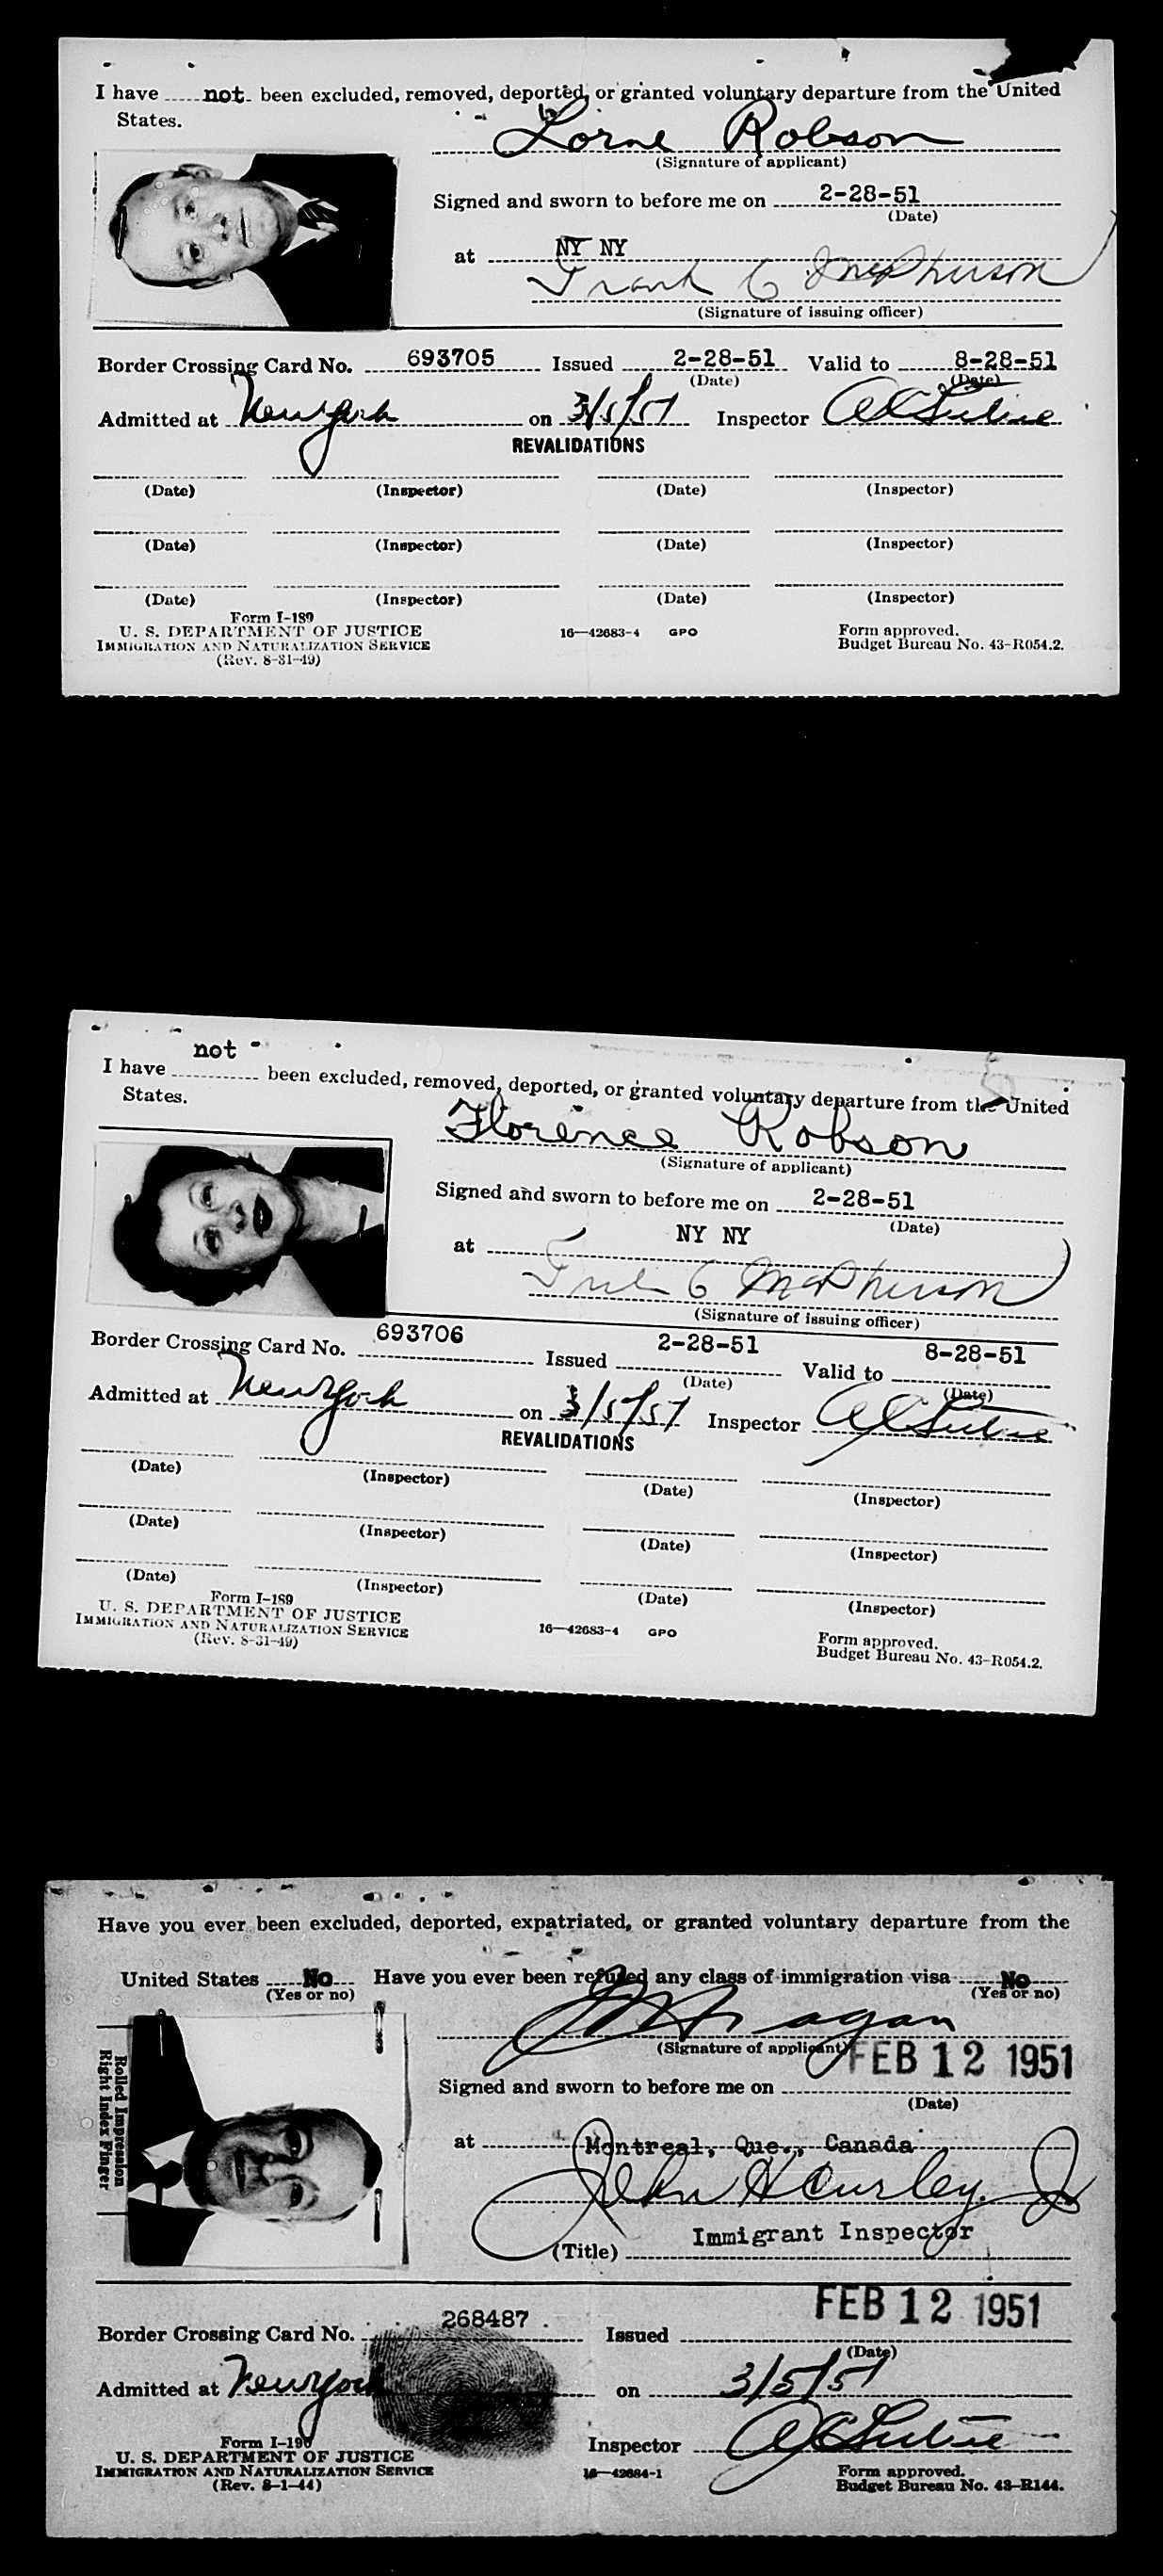 I have not been excluded, removed, deported, or granted voluntary departure from the United
States.
Lorne Robson
(Signature of applicant)
Signed and sworn to before me on 2-28-51
(Date)
at NY NY
Frank C McPherson
(Signature of issuing officer)
Border Crossing Card No. 693705 Issued 2-28-51 Valid to 8-28-51
(Date) (Date)
Admitted at New York on 3/5/51 Inspector
REVALIDATIONS
(Date) (Inspector) (Date) (Inspector)
(Date) (Inspector) (Date) (Inspector)
(Date) (Inspector) (Date) (Inspector)
Form I-189
U. S. DEPARTMENT OF JUSTICE 16—42683-4 GPO Form approved.
IMMIGRATION AND NATURALIZATION SERVICE Budget Bureau No. 43-R054.2.
(Rev. 8-31-49)
not
I have been excluded, removed, deported, or granted voluntary departure from the United
States.
Florence Robson
(Signature of applicant)
Signed and sworn to before me on 2-28-51
(Date)
at NY NY
McPherson
(Signature of issuing officer)
Border Crossing Card No. 693706 Issued 2-28-51 Valid to 8-28-51
(Date) (Date)
Admitted at New York on 3/5/51 Inspector
REVALIDATIONS
(Date) (Inspector) (Date) (Inspector)
(Date) (Inspector) (Date) (Inspector)
(Date) (Inspector) (Date) (Inspector)
Form I-189
U. S. DEPARTMENT OF JUSTICE 16—42683-4 GPO Form approved.
IMMIGRATION AND NATURALIZATION SERVICE Budget Bureau No. 43-R054.2.
(Rev. 8-31-49)
Have you ever been excluded, deported, expatriated, or granted voluntary departure from the
United States No Have you ever been refused any class of immigration visa No
(Yes or no) (Yes or no)
(Signature of applicant)
Rolled Impression
Right Index Finger
Signed and sworn to before me on FEB 12 1951
(Date)
at Montreal, Que., Canada
John H Curley. Jr
(Title) Immigrant Inspector
Border Crossing Card No. 268487 Issued FEB 12 1951
(Date)
Admitted at New York on 3/5/51
Form I-190 Inspector
U. S. DEPARTMENT OF JUSTICE
IMMIGRATION AND NATURALIZATION SERVICE 16—42684-1 Form approved.
(Rev. 8-1-44) Budget Bureau No. 43-R144.